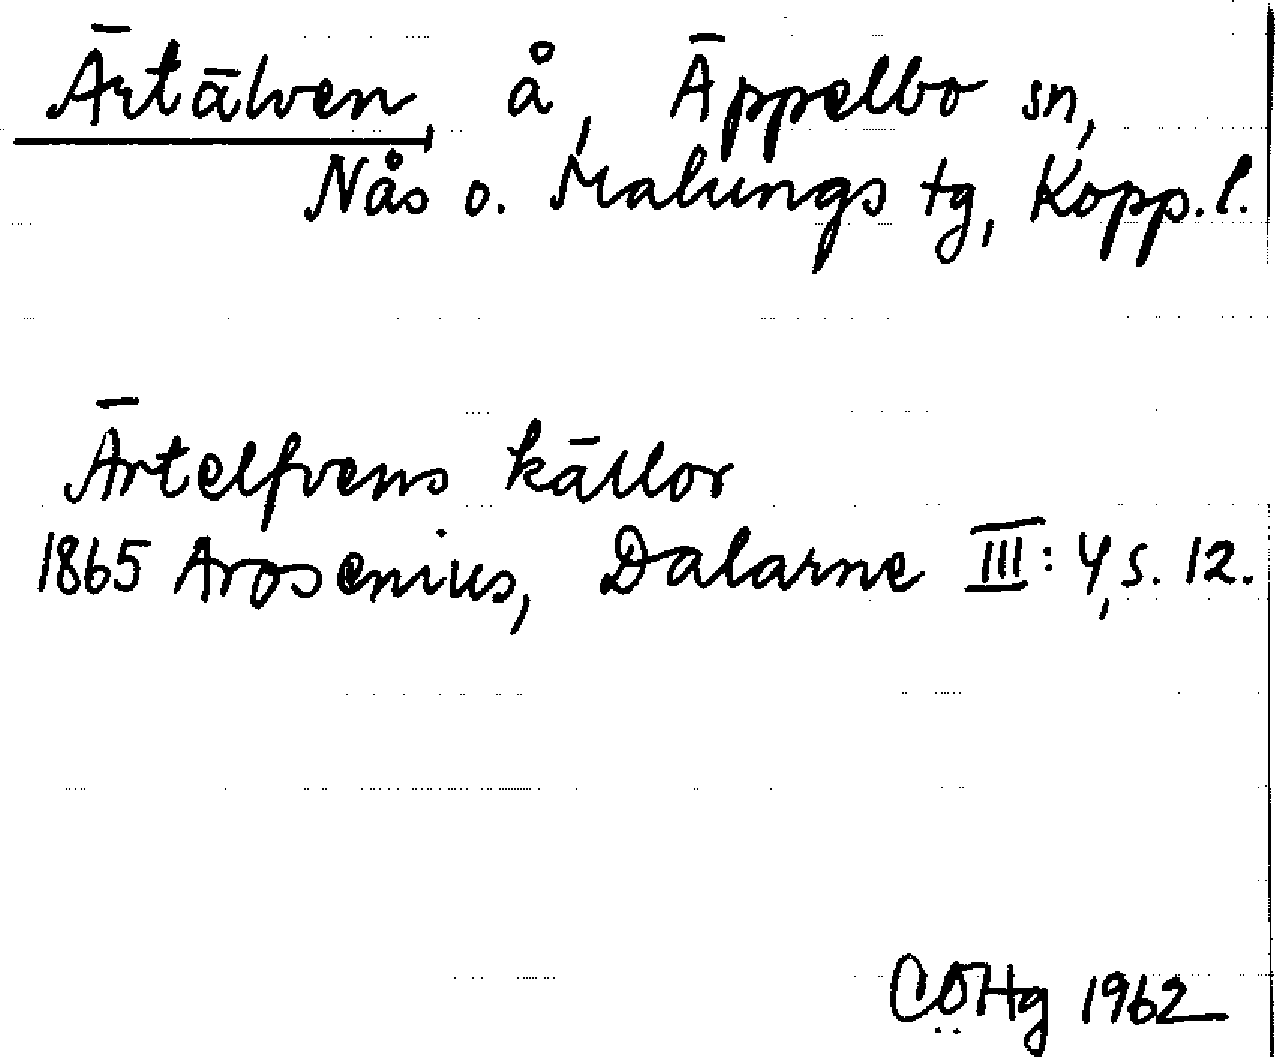 Ärtälven, å, Äppelbo sn,
Nås o. Malungs tg, Kopp. l.
Ärtelfvens källor
1865 Arosenius, Dalarne III: 4, s. 12.
CÖHg 1962